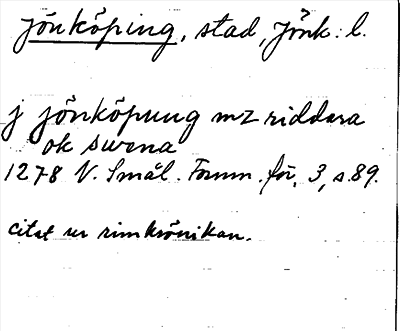 Jönköping, stad, Jönk: l.
j jönköpung mz riddara
ok swena
1278 V. Smål. Fornm. för. 3, s.89.
citat ur rimkrönikan.